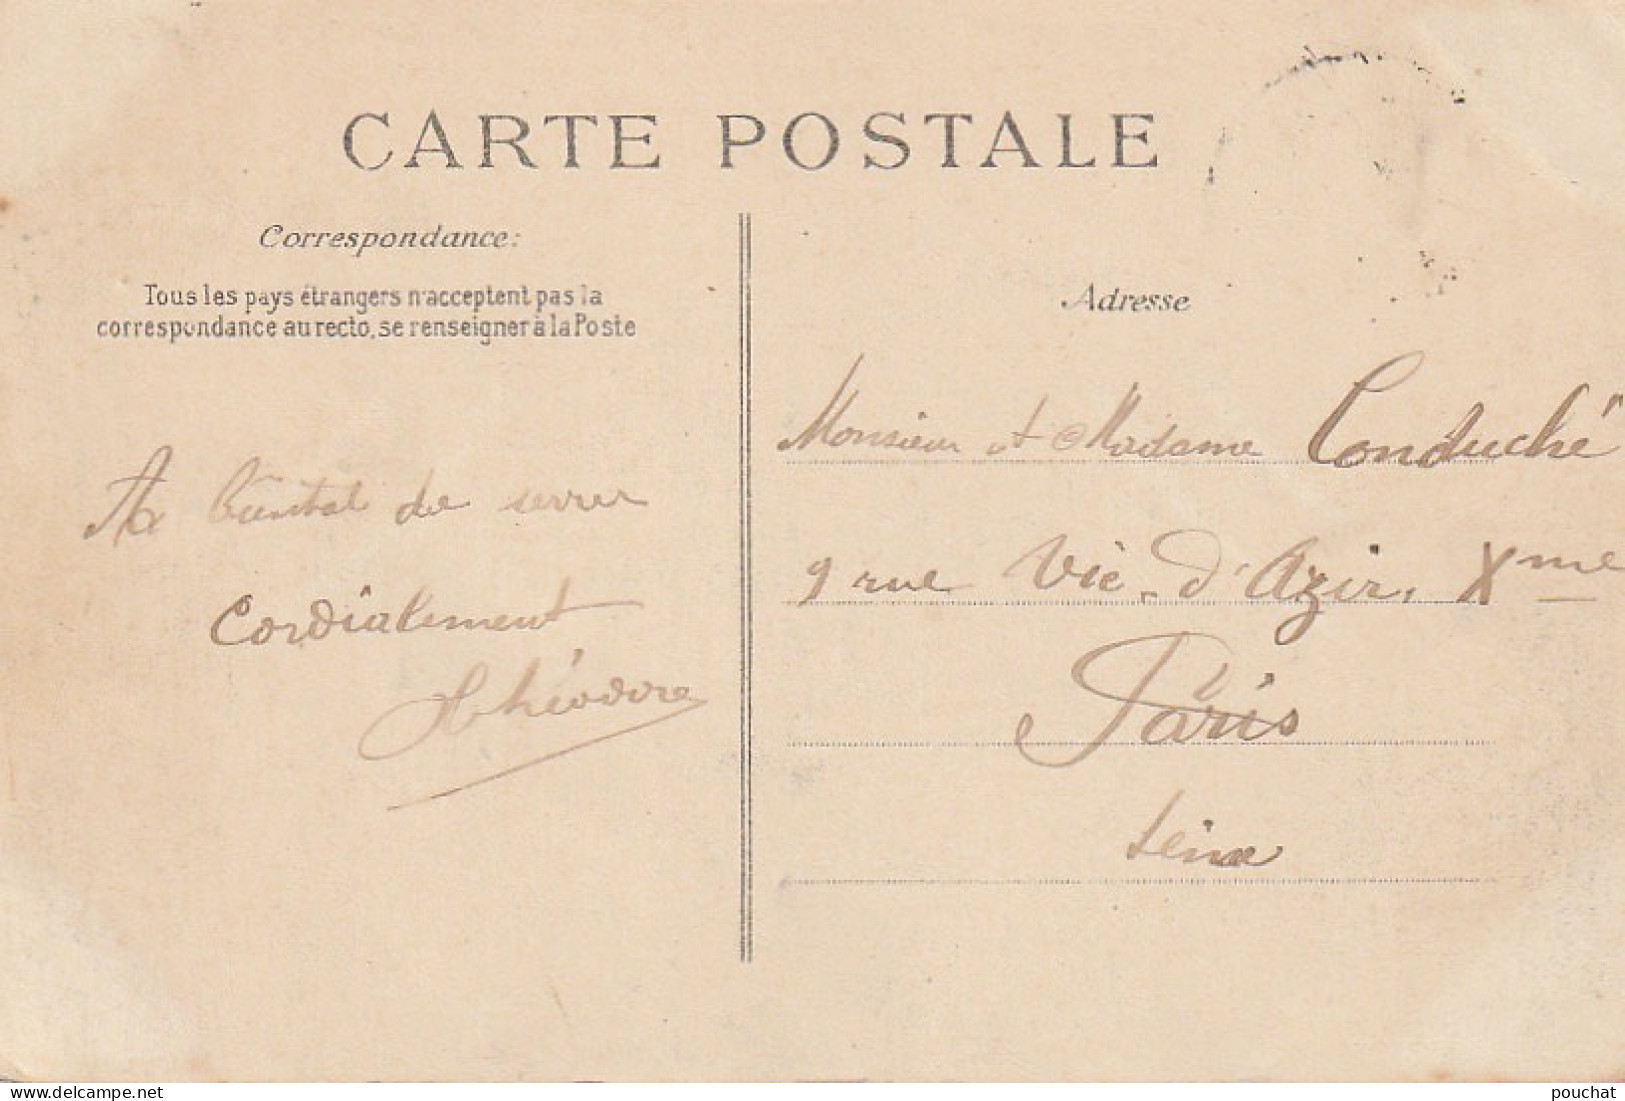 CARTE POSTALE
Correspondance:
Tous les pays étrangers n'acceptent pas la
correspondance au recto, se renseigner à la Poste
Adresse
Monsieur et Madame Conduché
9 rue Vic-d'Azir, Xme
Paris
Seine
de
Cordialement
Théodore
delcampe.net
pouchat